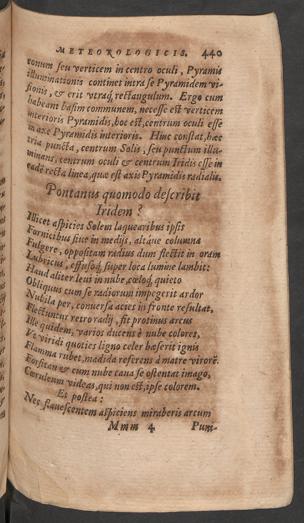 METEOROLOGICIS. 440
conum seu verticem in centro oculi, Pyramis
illuminationis continet intra se Pyramidem vi-
sionis, & erit utraq́ rectangulum. Ergo cum
habeant basim communem, necesse est verticem
interioris Pyramidis, hoc est, centrum oculi esse
in axe Pyramidis interioris. Hinc constat, hæc
tria puncta, centrum Solis, seu punctum illu-
minans, centrum oculi & centrum Iridis esse in
eade recta linea, quæ est axis Pyramidis radialis.
Pontanus quomodo describit
Iridem?
Illicet aspicies Solem laquearibus ipsis
Fornicibus siue in medijs, altáue columna
Fulgere, oppositam radius dum flectit in oram
Lubricus, effusoq́ super loca lumine lambit:
Haud aliter leui in nube, cœloq́ quieto
Obliquus cum se radiorum impegerit ardor
Nubila per, conuersa acies in fronte resultat,
Flectuntur retro radij, fit protinus arcus
Ille quidem, varios ducens è nube colores,
Ve viridi quoties ligno celer hæserit ignis
Flamma rubet, madida referens à matre virorē.
Forsitan & cum nube caua se ostentat imago,
Cœruleum videas, qui non est, ipse colorem.
Et postea:
Nec flauescentem aspiciens miraberis arcum
Mmm 4 Pum-